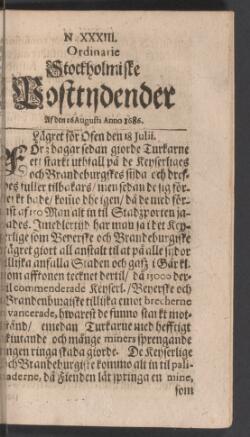 N. XXXIII.
Ordinarie
Stockholmiske
Posttydender
Af den 16 Augusti Anno 1686.
Lägret för Ofen den 18 Julii.
För 2 dagar sedan giorde Turkarne
ett starkt uthfall på de Keyserlines
och Brandeburgskes sijda och dref-
tilbakars/ men sedan de sig för-
kt hade/ komo dhe igen/ då de med för-
af 150 Man alt in til Stadzporten ja-
ades. Imedlertijdh har man ja i det Key-
erlige som Beyerske och Brandeburgiske
lägret giort all anstalt til at på alle sijdor
tillijka anfalla Staden och gafz i Går kl.
om afftonen tecknet dertil/ då 15000 der-
til commenderade Keyserl./ Beyerske och
Brandenburgiske tillijka emot brecherne
vancerade, hwarest de funno starkt mot-
stånd/ emedan Turkarne med hefftigt
skiutande och månge miners sprengande
ingen ringa skada giorde. De Keyserlige
och Brandeburgiske kommo alt in til pali-
saderne, då Fienden lät springa en mine,
som